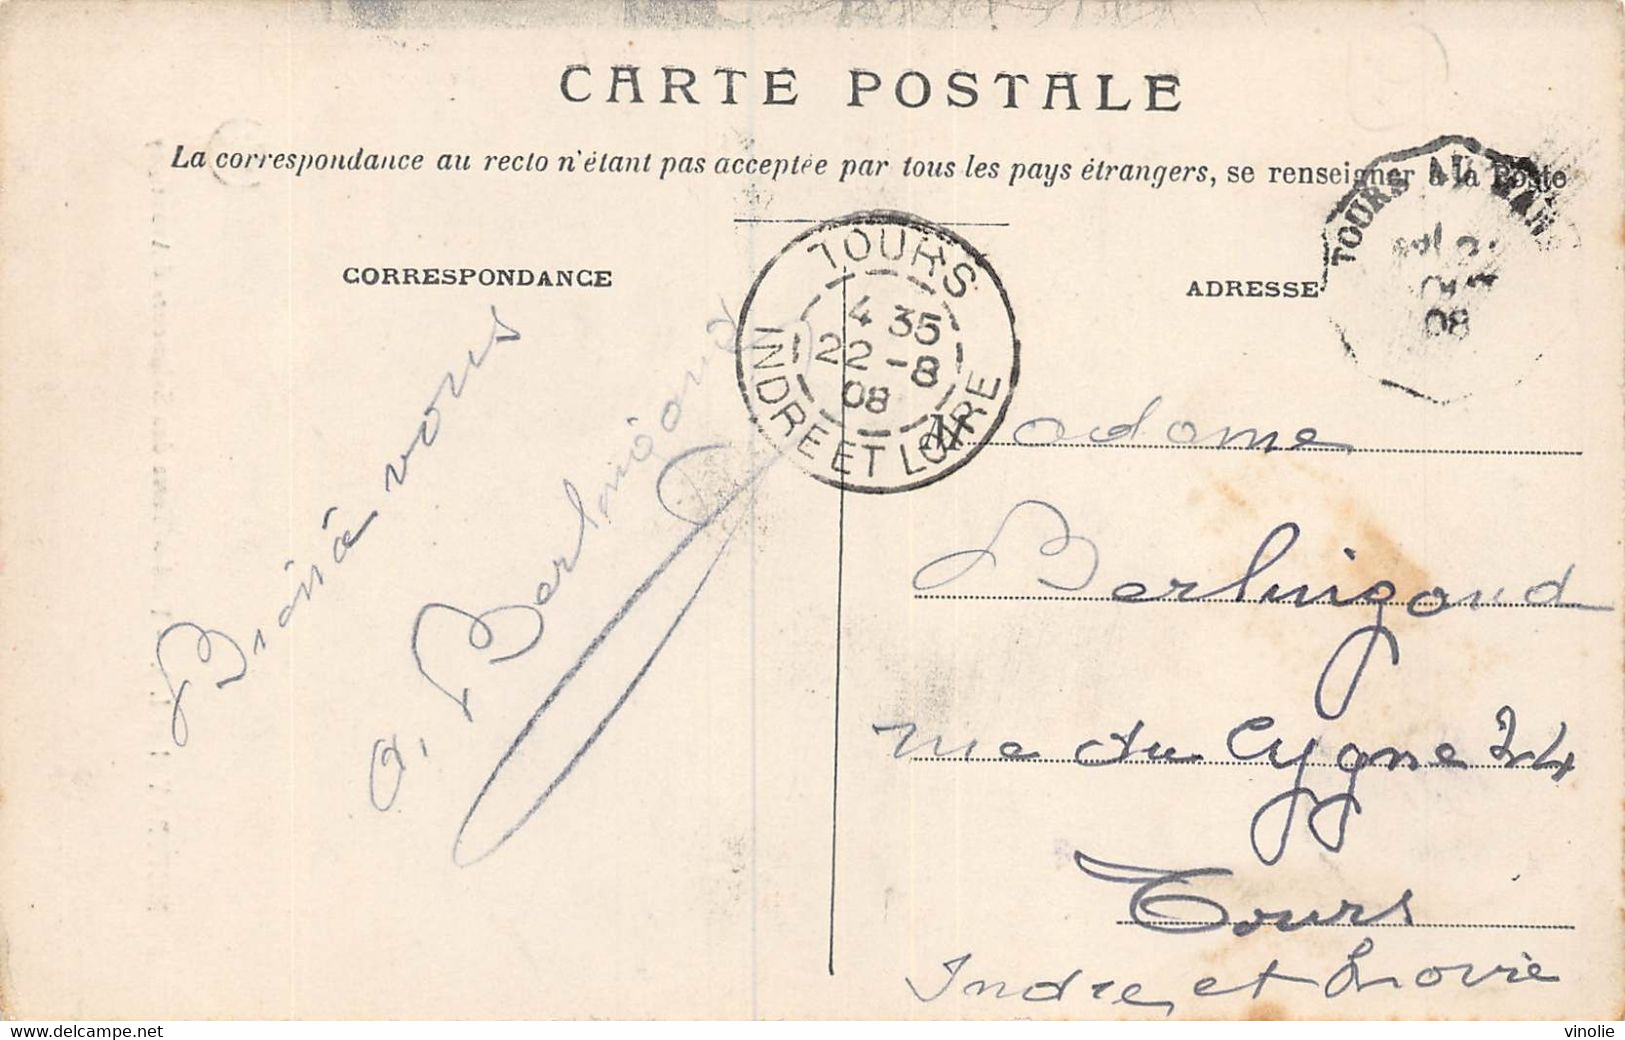 CARTE POSTALE
La correspondance au recto n'étant pas acceptée par tous les pays étrangers, se renseigner à la Poste
CORRESPONDANCE
ADRESSE
TOURS
4 35
22 - 8
08
INDRE ET LOIRE
TOURS AU
08
Bien à vous
A. Berlinigaud
Madame
Berluigaud
rue du Cygne 24
Tours
Indre et Loire
www.delcampe.net
vinolie